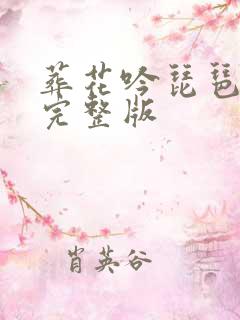 葬花吟琵琶
完整版
肖英谷